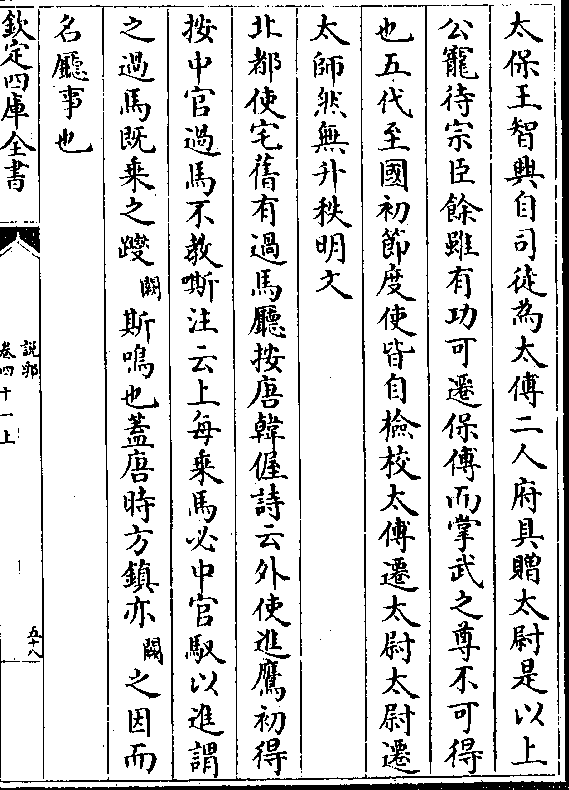 太保王智興自司徒為太傅二人府具贈太尉是以上
公寵待宗臣餘雖有功可遷保傅而掌武之尊不可得
也五代至國初節度使皆自檢校太傅遷太尉太尉遷
太師然無升秩明文
北都使宅舊有過馬廳按唐韓偓詩云外使進鷹初得
按中官過馬不教嘶注云上每乘馬必中官馭以進謂
之過馬既乘之躞闕斯鳴也蓋唐時方鎮亦闕之因而
名廳事也
欽定四庫全書
說郛
卷四十一上
五十八